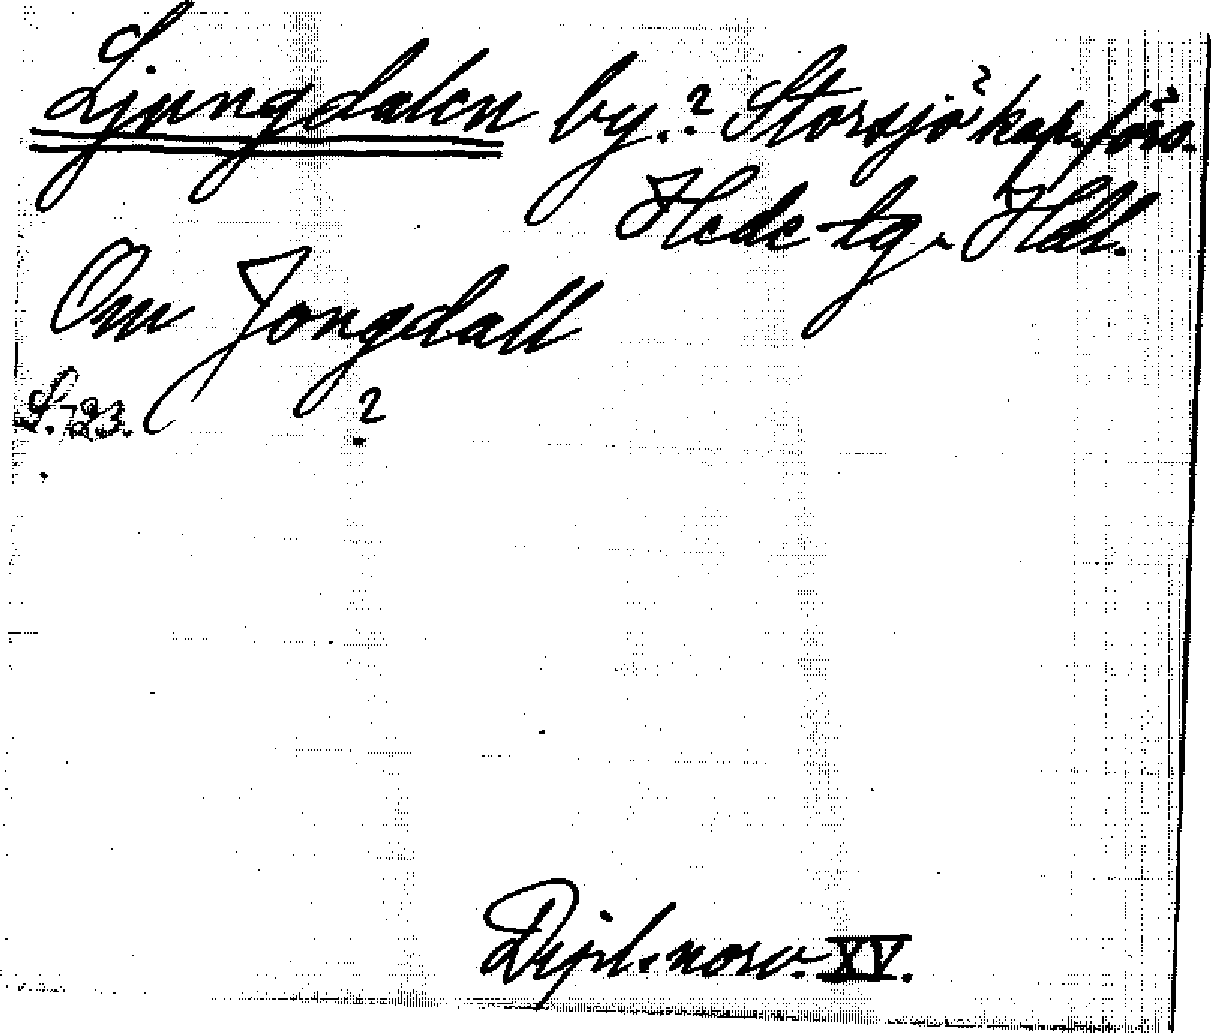 Ljungdalen by.? Storsjö kap.förs.
Hede tg. Hdl.
Om Jongdall
S. 123.
?
Dipl. norv. XV.